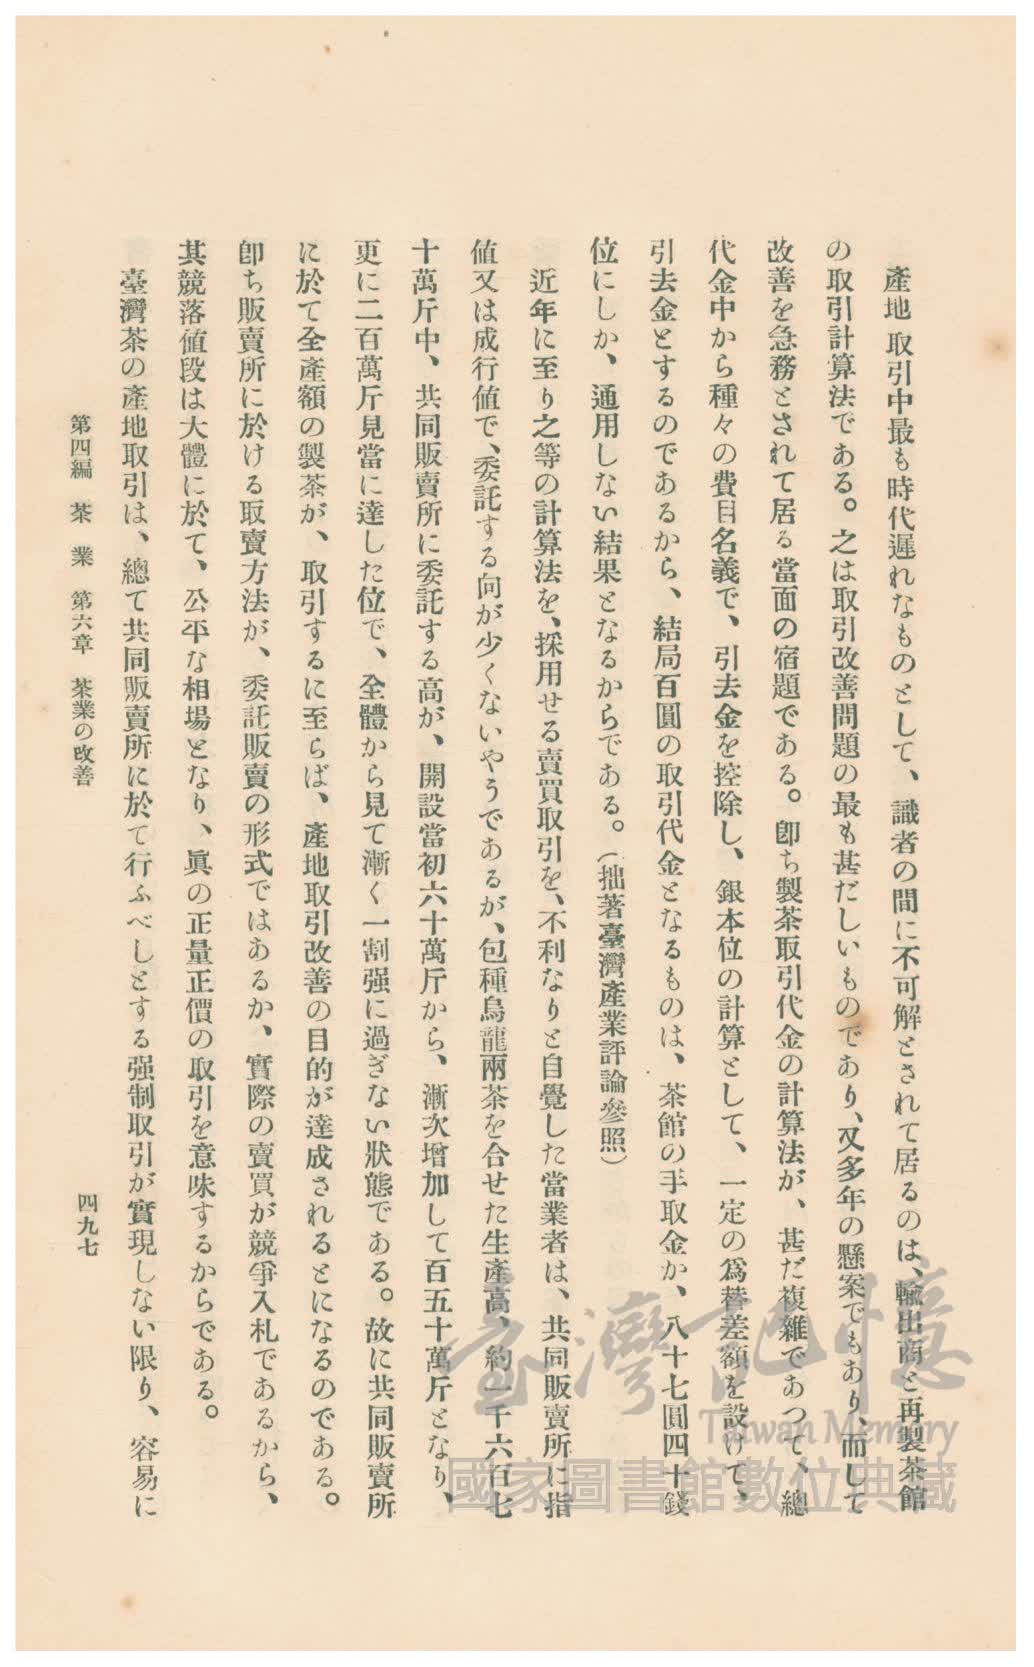 產地取引中最も時代遲れなものとして、識者の間に不可解とされて居るのは、輸出商と再製茶館
の取引計算法である。之は取引改善問題の最も甚だしいものであり、又多年の懸案でもあり、而して
改善を急務とされて居る當面の宿題である。卽ち製茶取引代金の計算法が、甚だ複雜であつて、總
代金中から種々の費目名義で、引去金を控除し、銀本位の計算として、一定の爲替差額を設けて、
引去金とするのであるから、結局百圓の取引代金となるものは、茶館の手取金か、八十七圓四十錢
位にしか、通用しない結果となるからである。（拙著臺灣產業評論參照）
近年に至り之等の計算法を、採用せる賣買取引を、不利なりと自覺した當業者は、共同販賣所に指
値又は成行値で、委託する向が少くないやうであるが、包種烏龍兩茶を合せた生產高、約一千六百七
十萬斤中、共同販賣所に委託する高が、開設當初六十萬斤から、漸次增加して百五十萬斤となり、
更に二百萬斤見當に達した位で、全體から見て漸く一割强に過ぎない狀態である。故に共同販賣所
に於て全產額の製茶が、取引するに至らば、產地取引改善の目的が達成されるとになるのである。
卽ち販賣所に於ける取賣方法が、委託販賣の形式ではあるか、實際の賣買が競爭入札であるから、
其競落値段は大體に於て、公平な相場となり、眞の正量正價の取引を意味するからである。
臺灣茶の產地取引は、總て共同販賣所に於て行ふべしとする强制取引が實現しない限り、容易に
第四編 茶業 第六章 茶業の改善
四九七
臺灣記憶
Taiwan Memory
國家圖書館數位典藏